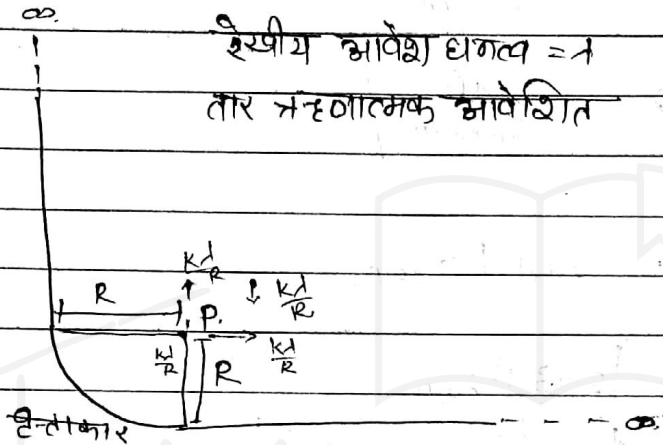 ∞
रेखीय आवेश घनत्व = λ
तार ऋणात्मक आवेशित
Kλ/R
↓ Kλ/R
R
P.
Kλ/R
Kλ/R
R
वृत्ताकार
∞